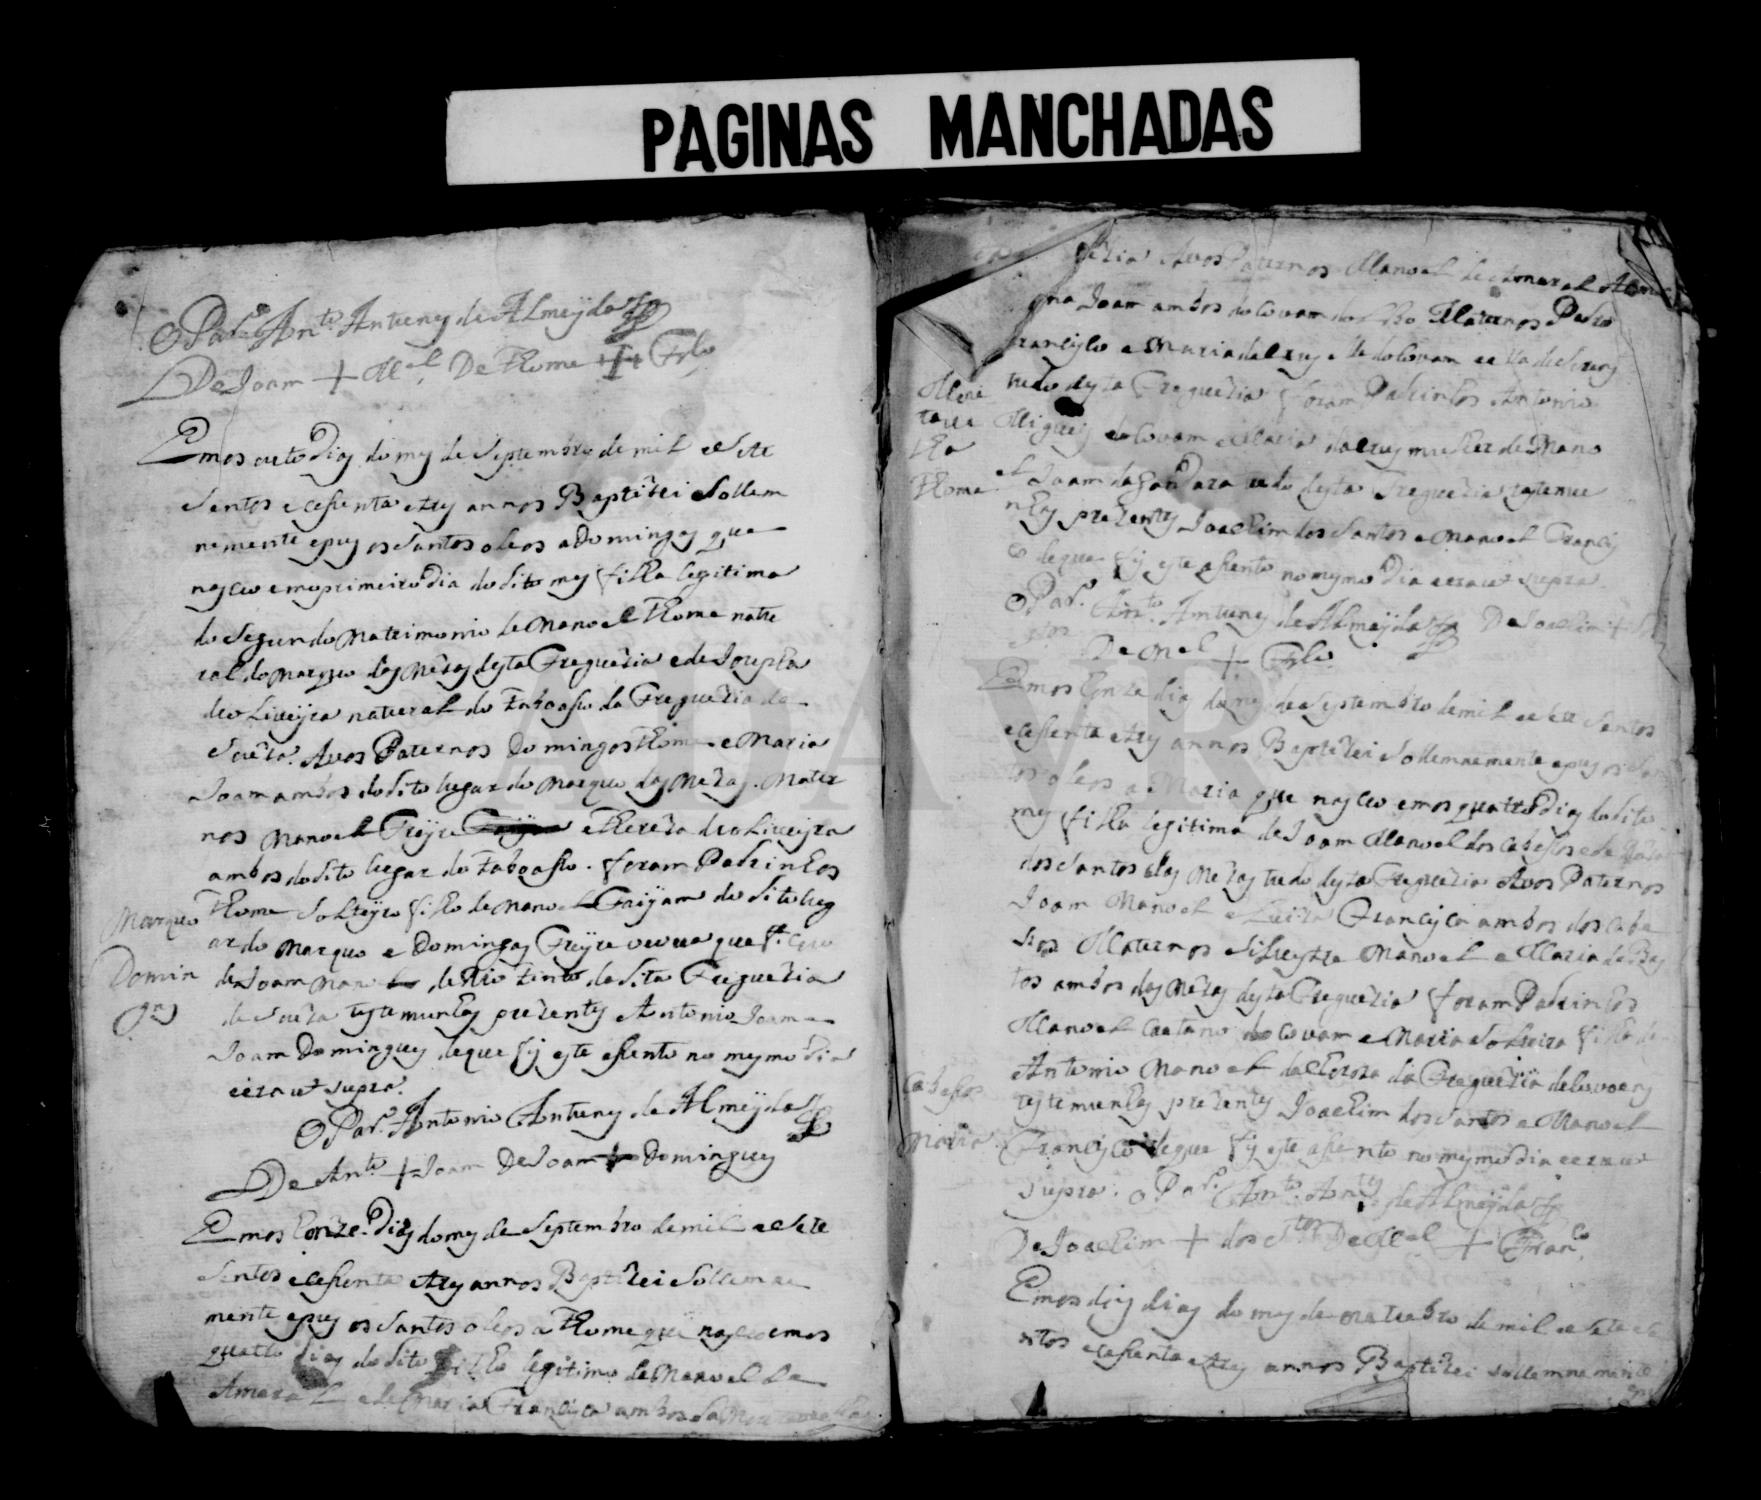 PAGINAS MANCHADAS
O Pad.e Ant.o Antunes de Almeyda
De Joam + M.el De Thome + Fr.co
Emos outo Dias do mes de Septembro de mil e Sete
Sentos e cessenta e tres annos Baptizei Sollem
nemente e pus os Santos oleos a Domingas que
nasceo em o primeiro dia do dito mes filha legitima
do Segundo Matrimonio de Manoel Thome natu
ral do Marquo das Mezas desta Freguezia e de Josepha
de oLiveyra natural do Taboasso da Freguezia de
Souza. Avos Paternos Domingos Thome e Maria
Joam ambos do dito lugar do Marquo das Mezas. Mater
nos Manoel Freyre e Thereza de oLiveyra
ambos do dito lugar do Taboasso. foram Padrinhos
Thome Solteyro filho de Manoel do dito lug
ar do Marquo e Domingas Freyre veuva que
de Joam de Rio tinto da dita Freguezia
de Souza testemunhas prezentes Antonio Joam e
Joam Domingues de que fis este asento no mesmo dia
e era ut supra.
O Par. Antonio Antunes de Almeyda
De Ant.o + Joam De Joam + Domingues
Marquo
Domin
gas
Emos honze Dias do mes de Septembro de mil e Sete
Sentos e cessenta e tres annos Baptizei Sollemne
mente e pus os Santos oleos a Thome que nasceo emos
quatro dias do dito filho legitimo de Manoel de
Amaral e de Maria Francisca ambos da
Avos Paternos Manoel de Amaral
Joam ambos do Covam do Maternos Pedro
Francisco e Maria da Crus do Covam
tudo desta Freguezia foram Padrinhos Antonio
Migueis do Covam e Maria da Crus mulher de Mano
el Joam da Gandara tudo desta Freguezia testemu
nhas prezentes Joachim dos Santos e Manoel Francis
co de que fis este asento no mesmo dia e era ut supra.
O Par. Ant.o Antunes de Almeyda De Joachim +
De M.el + Fr.co
Thome
Emos honze dias do mes de Septembro de mil e Sete Sentos
e cessenta e tres annos Baptizei Sollemnemente e pus os San
tos oleos a Maria que nasceo emos quatro Dias do dito
mes filha legitima de Joam Manoel dos Cabessos e de
dos Santos das Mezas tudo desta Freguezia Avos Paternos
Joam Manoel e Luiza Francisca ambos dos Cabe
ssos Maternos Silvestre Manoel e Maria de Bas
tos ambos das Mezas desta Freguezia foram Padrinhos
Manoel Caetano do Covam e Maria Solteira filha de
Antonio Manoel da Freguezia de
testemunhas prezentes Joachim dos Santos e Manoel
Francisco de que fis este asento no mesmo dia e era ut
supra. O Par. Ant.o Ant.es de Almeyda
De Joachim + dos S.tos De M.el + Fran.co
Cabessos
Maria
Emos des dias do mes de outubro de mil e Sete ce
ntos e cessenta e tres annos Baptizei sollemnemente